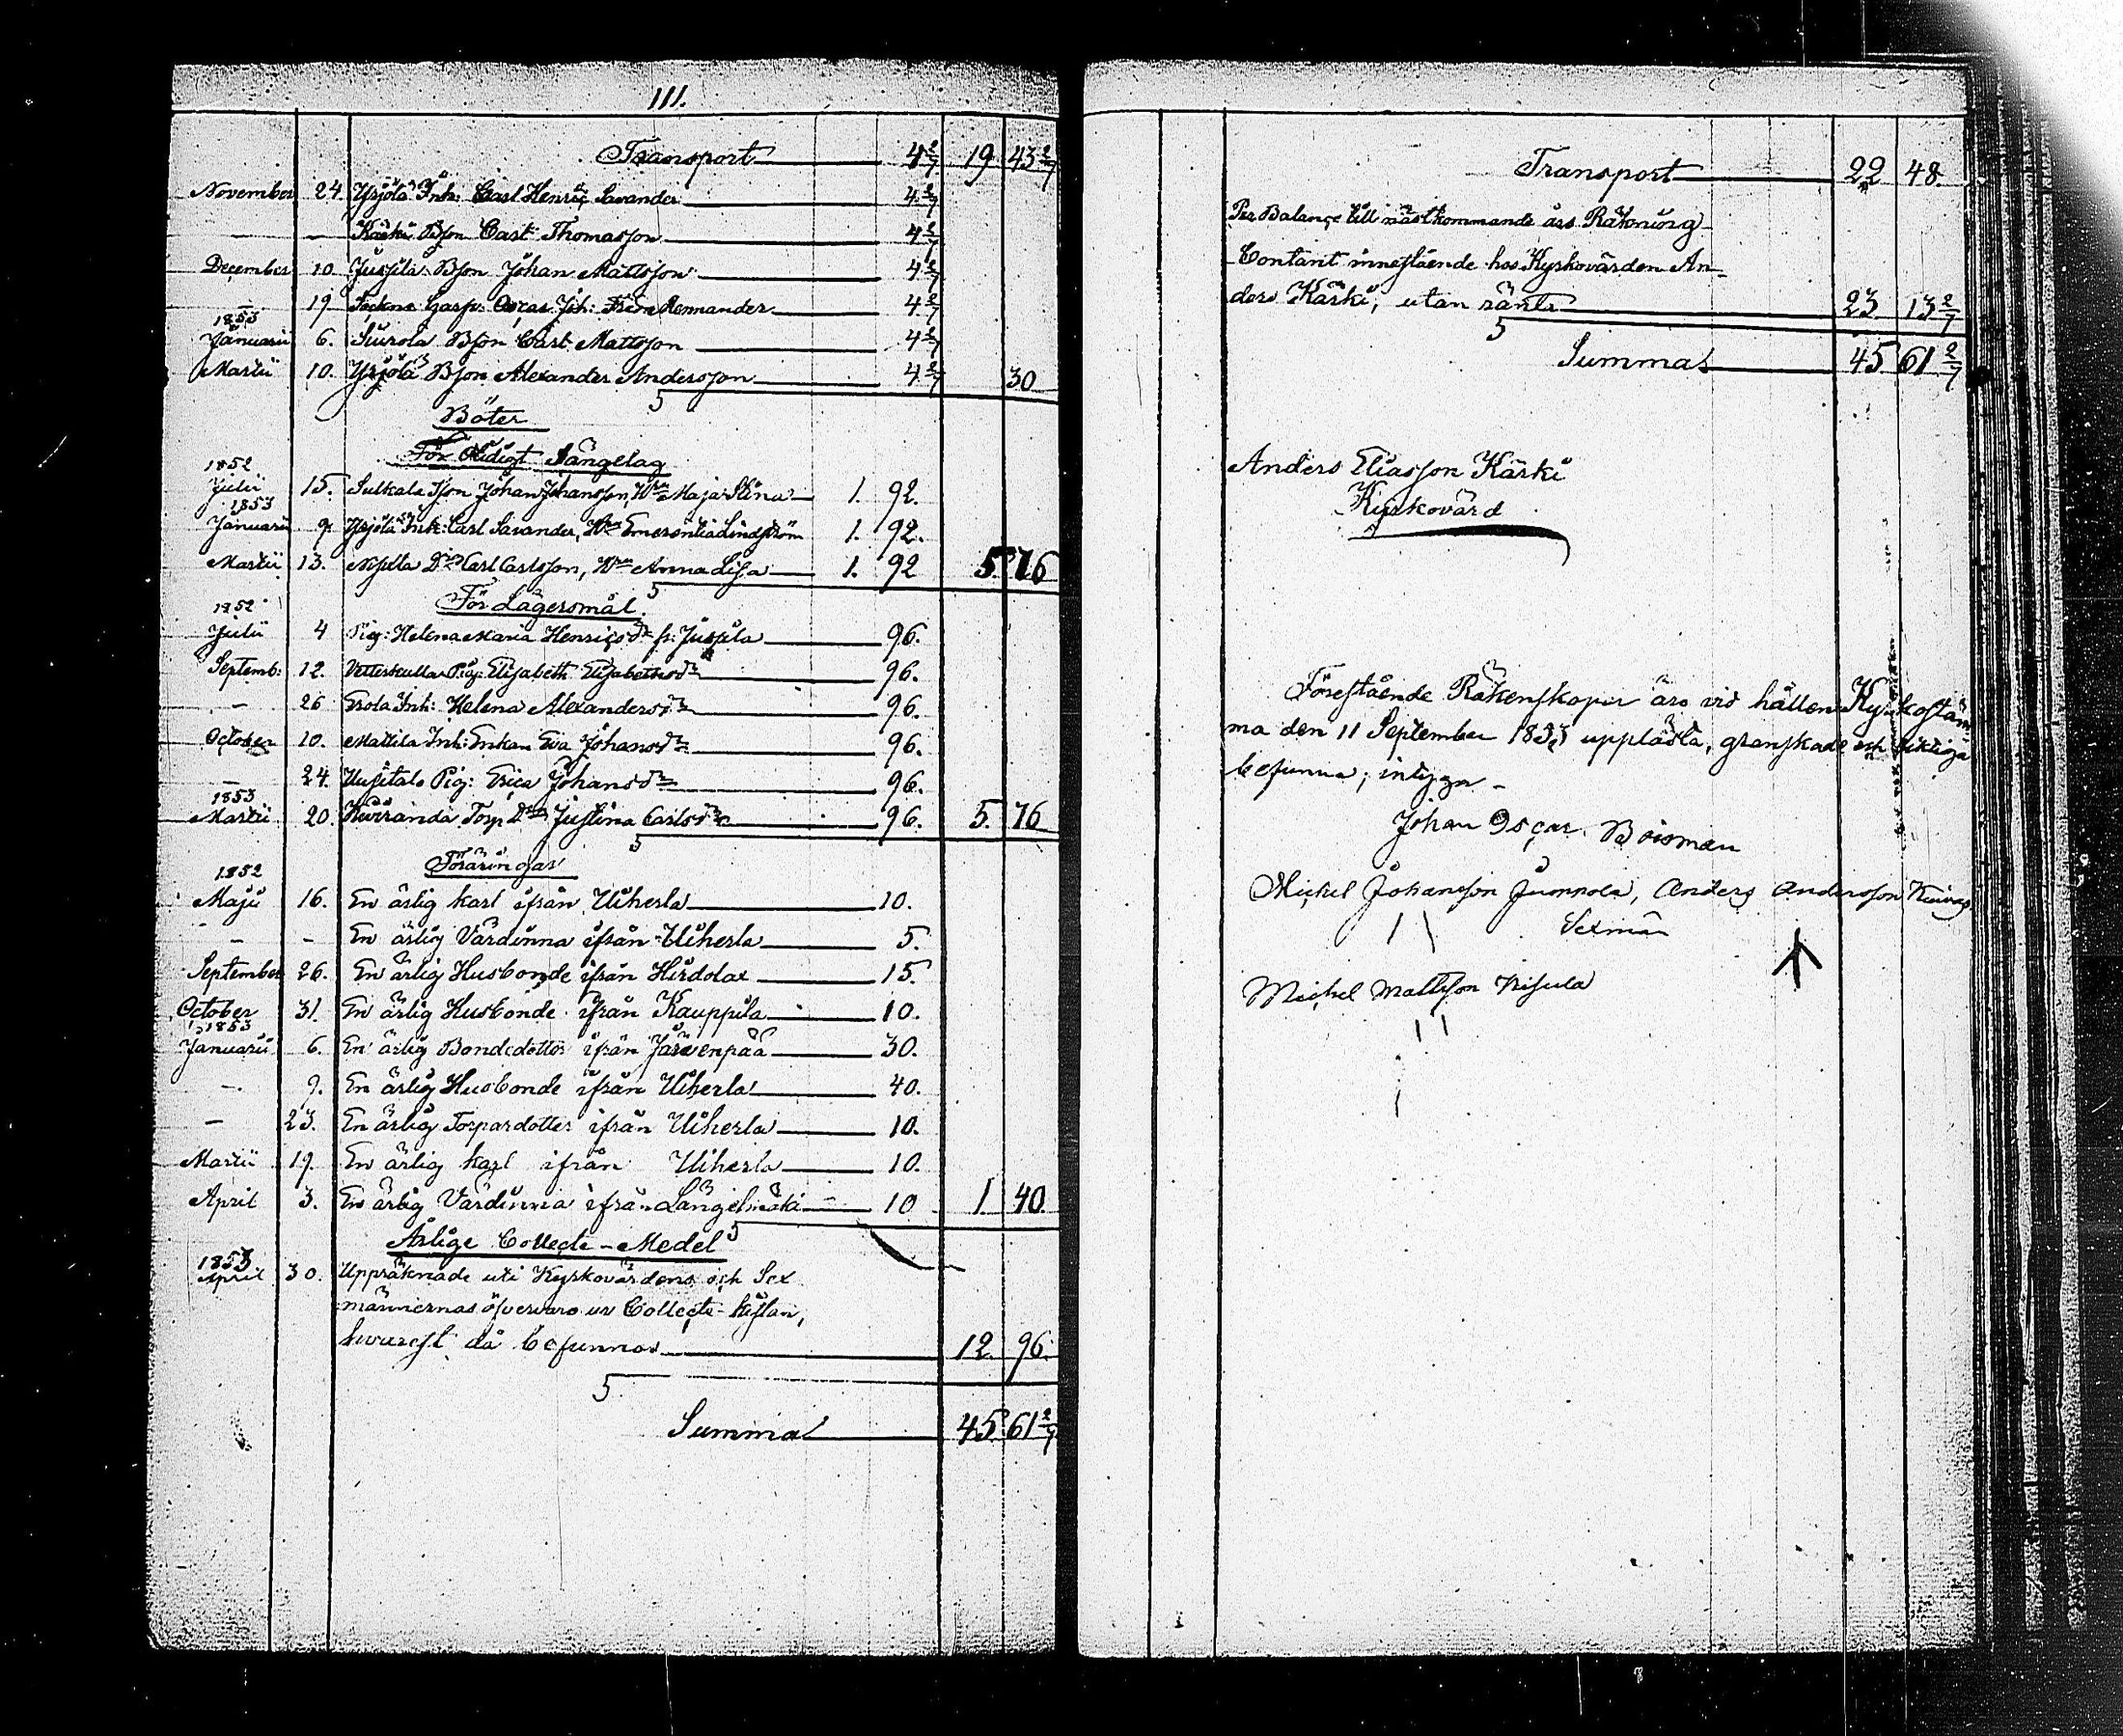 111.
Transport 4 2/7 19 43 2/7
November 24. Yrjölä Inh: Carl Henriç Savander 4 2/7
– – Käski Bson Carl Thomasson 4 2/7
December 10. Jussila Bson Johan Mattsson 4 2/7
– 19. Oscar Joh: Rennander 4 2/7
1853
Januarii 6. Siurola Bson Carl Mattsson 4 2/7
Martii 10. Yrjölä Bson Alexander Andersson 4 2/7 30
Böter
För Otidigt Sängelag
1852
Julii 15. Sulkala Tson Johan Johansson, H:n Maja Stina 1. 92.
1853
Januarii 9. Yrjölä Inh: Carl Savander, H:n Emerentia Lindström 1. 92.
Martii 13. D:g Karl Carlsson, H:n Anna Lisa 1. 92 5. 76
För Lägersmål.
1852
Julii 4 Pig: Helena Maria Henriçsd:r fr: Jussila 96.
Septemb: 12. Pig: Elisabeth Elisabethsd:r 96.
– 26 Erola Inh: Helena Alexandersd:r 96.
October 10. Mattila Inh: Enkan Eva Johansd:r 96.
– 24. Uusitalo Pig: Eriça Johansd:r 96.
1853
Martii 20. Kiviranda Torp D:r Justina Carlsd:r 96. 5. 76
Föräringar
1852
Maji 16. En ärlig karl ifrån Uiherla 10.
– – En ärlig Värdinna ifrån Uiherla 5.
September 26. En ärlig Husbonde ifrån Hirdolax 15.
October 31. En ärlig Husbonde ifrån Kauppila 10.
1853
Januarii 6. En ärlig Bondedotter ifrån Järvenpää 30.
– 9. En ärlig Husbonde ifrån Uiherla 40.
– 23. En ärlig Torpardotter ifrån Uiherla 10.
Martii 19. En ärlig karl ifrån Uiherla 10.
April 3. En ärlig Värdinna ifrån Längelmäki 10 1. 40.
Årlige Colleçte-Medel
1853
April 30. Uppräknade uti Kyrkovärdens och Sex
männernas öfvervaro ur Colleçte-kistan,
hvarest då befunnos 12. 96.
Summa 45. 61 2/7
Transport 22 48.
Per Balançe till nästkommande års Räkning
Contant innestående hos Kyrkovärden An-
ders Käski, utan ränta 23. 13 2/7
Summa 45 61 2/7
Anders Eliasson Käski
Kyrkovärd
Förestående Räkenskaper äro vid hållen Kyrkostäm
ma den 11 September 1853 upplästa, granskade och riktiga
befunna; intygar
Johan Osçar Boisman
Miçhel Johansson Junnola, Anders Andersson
Sexmän
Miçhel Mattsson